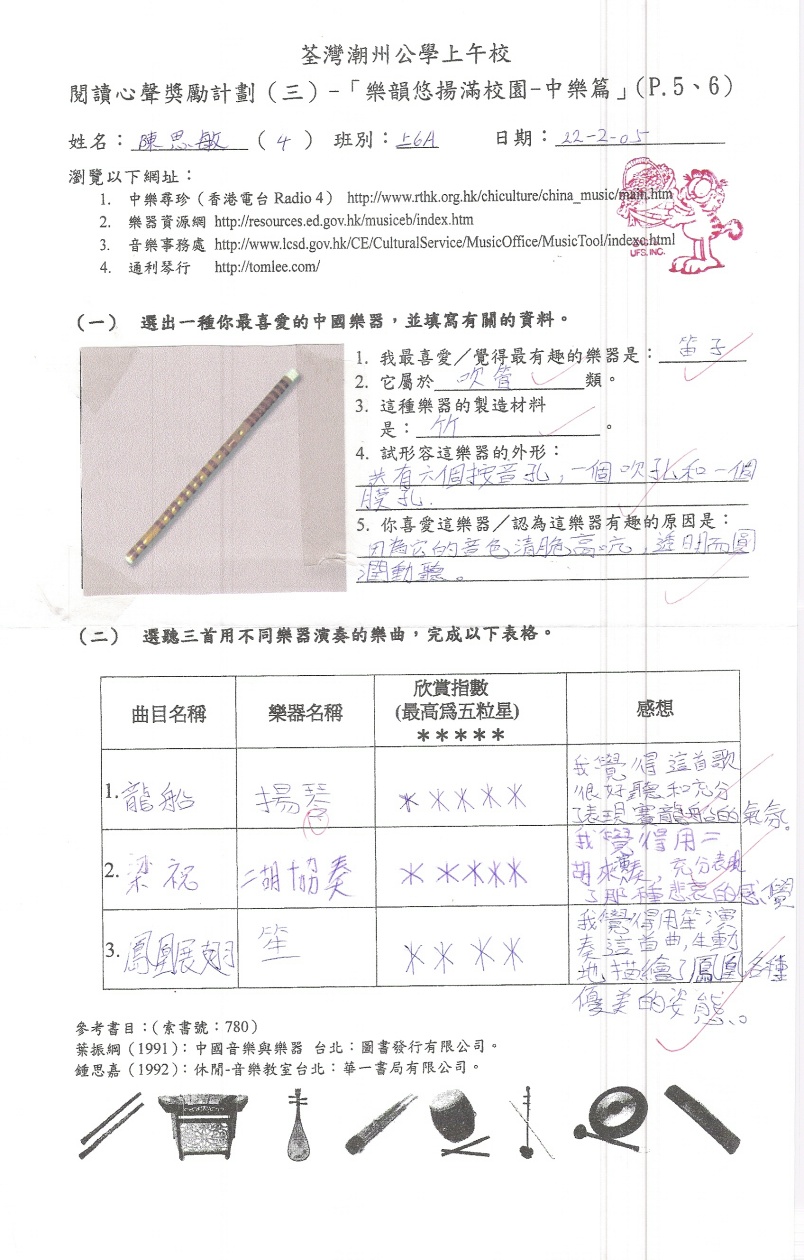 荃灣潮州公學上午校
閱讀心聲獎勵計劃（三）-「樂韻悠揚滿校園-中樂篇」(P.5、6)
姓名：陳思敏（4）班別：上6A 日期：22-2-05
瀏覽以下網址：
1. 中樂尋珍（香港電台 Radio 4） http://www.rthk.org.hk/chiculture/china_music/main.htm
2. 樂器資源網 http://resources.ed.gov.hk/musiceb/index.htm
3. 音樂事務處 http://www.lcsd.gov.hk/CE/CulturalService/MusicOffice/MusicTool/indexc.html
4. 通利琴行 http://tomlee.com/
UFS, INC.
（一） 選出一種你最喜愛的中國樂器，並填寫有關的資料。
1. 我最喜愛／覺得最有趣的樂器是：笛子
2. 它屬於 吹管 類。
3. 這種樂器的製造材料
是：竹。
4. 試形容這樂器的外形：
共有六個按音孔，一個吹孔和一個
膜孔.
5. 你喜愛這樂器／認為這樂器有趣的原因是：
因為它的音色清脆高亢，透明而圓
潤動聽。
（二） 選聽三首用不同樂器演奏的樂曲，完成以下表格。
曲目名稱 樂器名稱 欣賞指數 感想
(最高為五粒星)
＊＊＊＊＊
1. 龍船 揚琴 ＊＊＊＊＊ 我覺得這首歌
很好聽和充分
表現賽龍船的氣氛。
2. 梁祝 二胡協奏 ＊＊＊＊＊ 我覺得用二
胡來奏，充分表現
了那種悲哀的感覺
3. 鳳凰展翅 笙 ＊＊＊＊ 我覺得用笙演
奏這首曲，生動
地描繪了鳳凰各種
優美的姿態。
參考書目：(索書號：780)
葉振綱（1991)：中國音樂與樂器 台北：圖書發行有限公司。
鍾思嘉（1992)：休閒-音樂教室台北：華一書局有限公司。